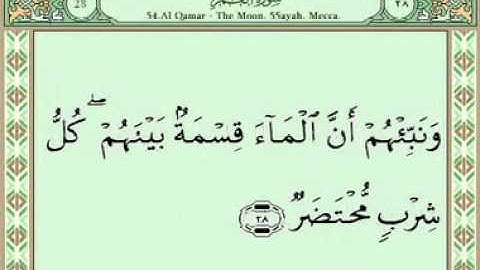 28
54.Al Qamar - The Moon. 55ayah. Mecca.
٢٨
وَنَبِّئْهُمْ أَنَّ ٱلْمَآءَ قِسْمَةٌۢ بَيْنَهُمْ ۖ كُلُّ
شِرْبٍ مُّحْتَضَرٌ ٢٨